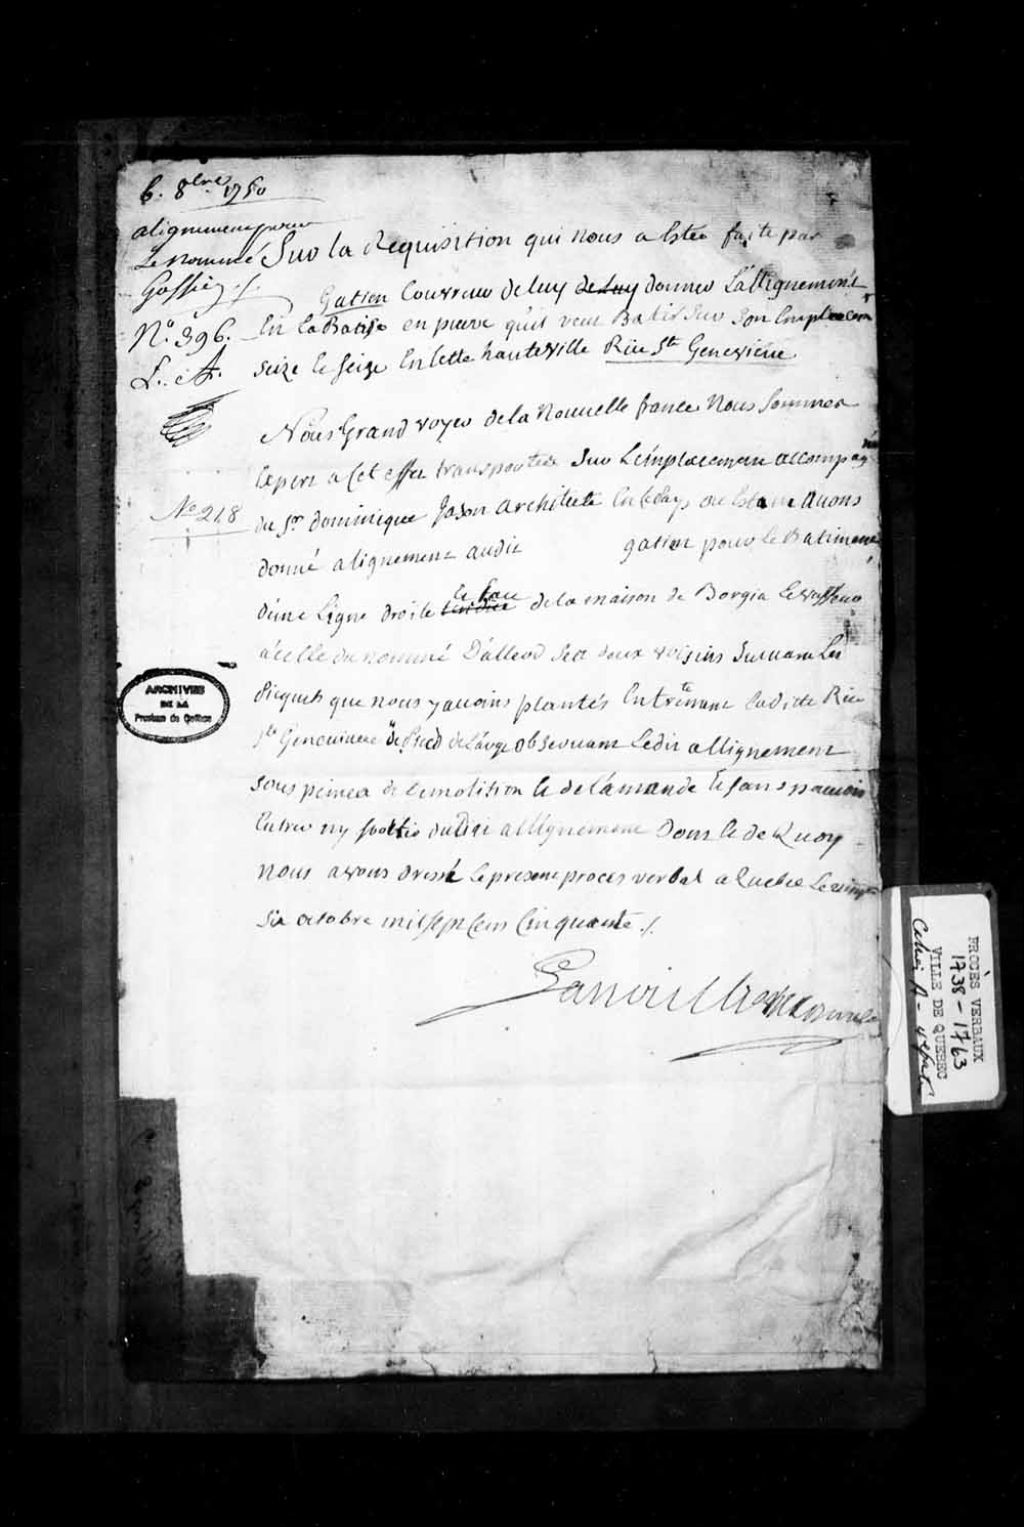 6. 8bre 1750
alignement pour
Le nommé
Gassien ./.
N°. 396.
L. A.
N° 218
Sur la Requisition qui nous a Estée faite par
Gatien Couvreur de luy de luy donner L'allignement
En la Batisse en pierre qu'il veut Batir Sur Son Emplacem
seize le seize En Cette hauteville Rüe Ste Genevieve
Nous Grand voyer de la Nouvelle france Nous Sommes
Expres a Cet effet transportés Sur L'emplacement accompagné
du Sr. dominique Janson architecte En Ce Pays ou Estant Avons
donné alignement audit gatien pour le Batiment
d'une Ligne droite la face de la maison de Borgia Levasseur
a celle du nommé D'alleud Ses deux voisins Suivant Les
Picquets que nous y avons plantés En tirant Ladite Rüe
Ste Genevieve de Pied de large observant Ledit allignement
sous peines de demolition Et de l'amande Et sans pouvoir
Entrer ny sortir dudit allignement Dont Et de Quoy
nous avons dressé Le present procès verbal a Quebec Le vingt
Six octobre mil Sept Cens Cinquante ./.
Lanoullier de Boisclerc
ARCHIVES
DE LA
Province de Québec
PROCÈS VERBAUX
1738 - 1763
VILLE DE QUEBEC